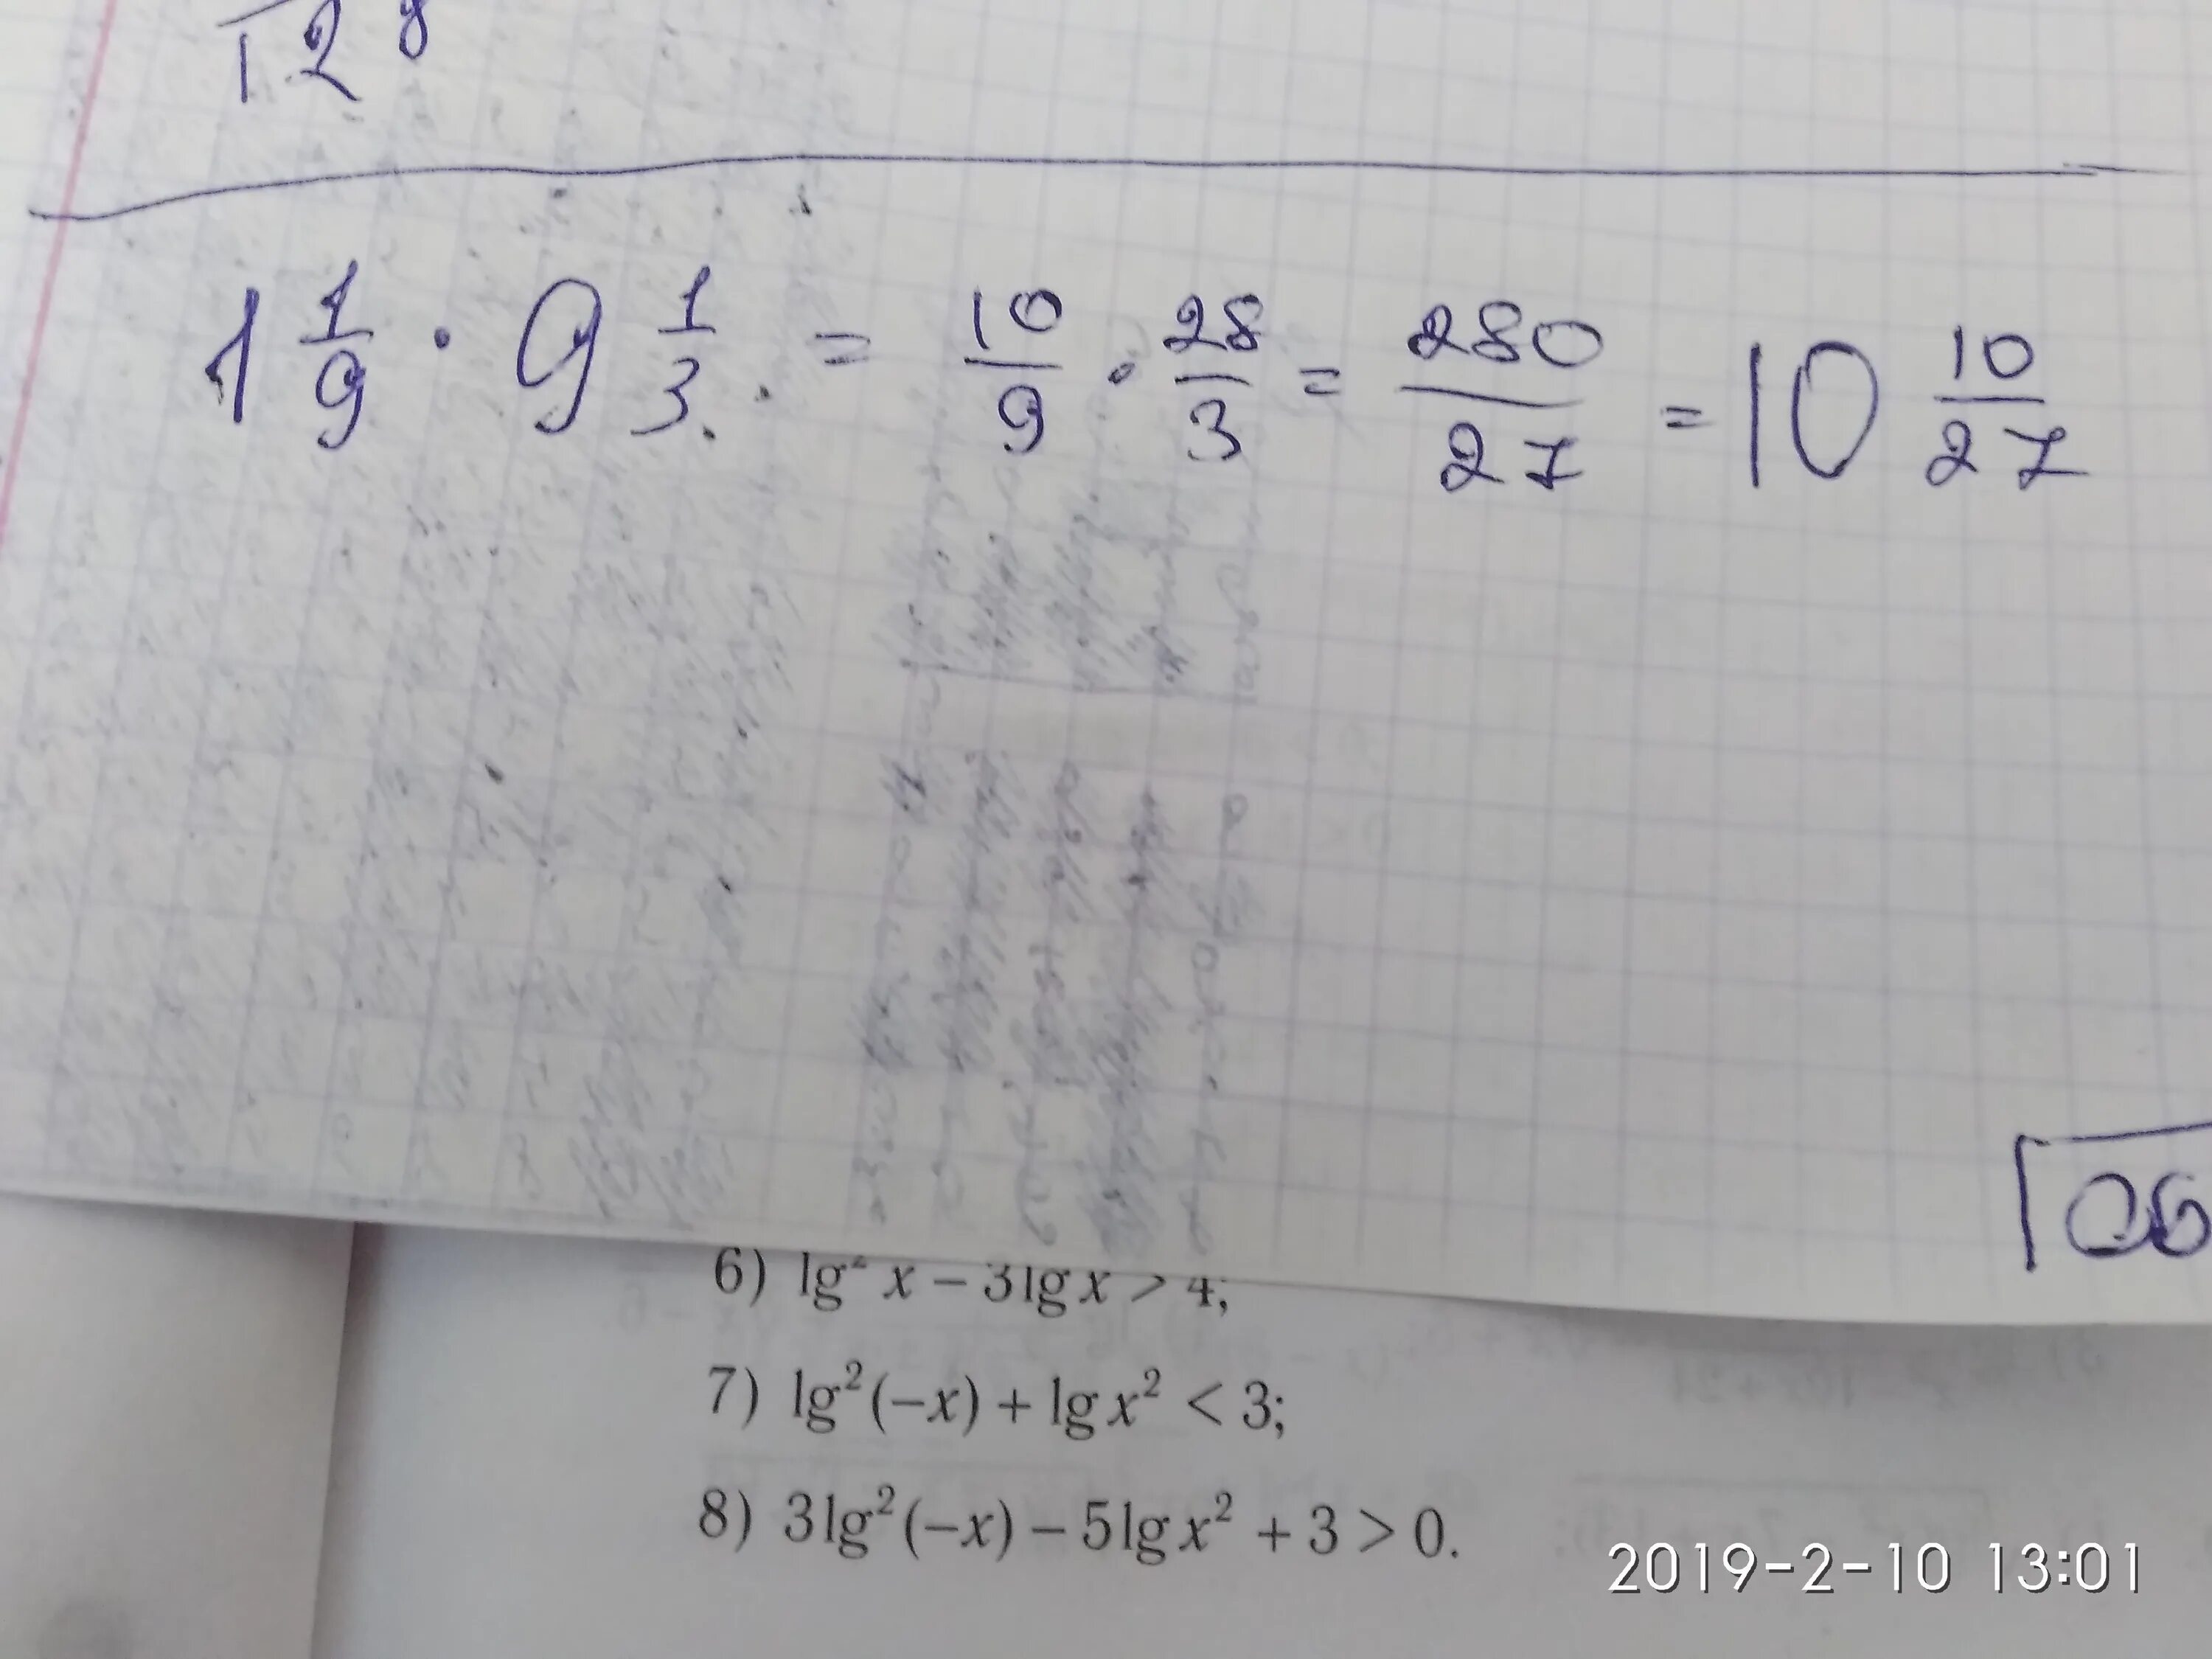 12 8
1 1/9 · 9 1/3 = 10/9 · 28/3 = 280/27 = 10 10/27
06
6) lg² x − 3lg x > 4;
7) lg²(−x) + lg x² < 3;
8) 3lg²(−x) − 5lg x² + 3 > 0.
2019-2-10 13:01